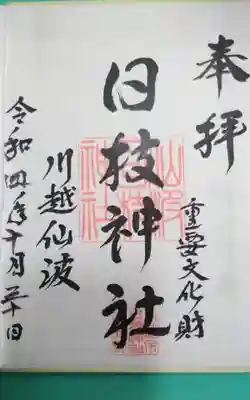 奉拝
重要文化財
日枝神社
川越仙波
令和四年十月三十日